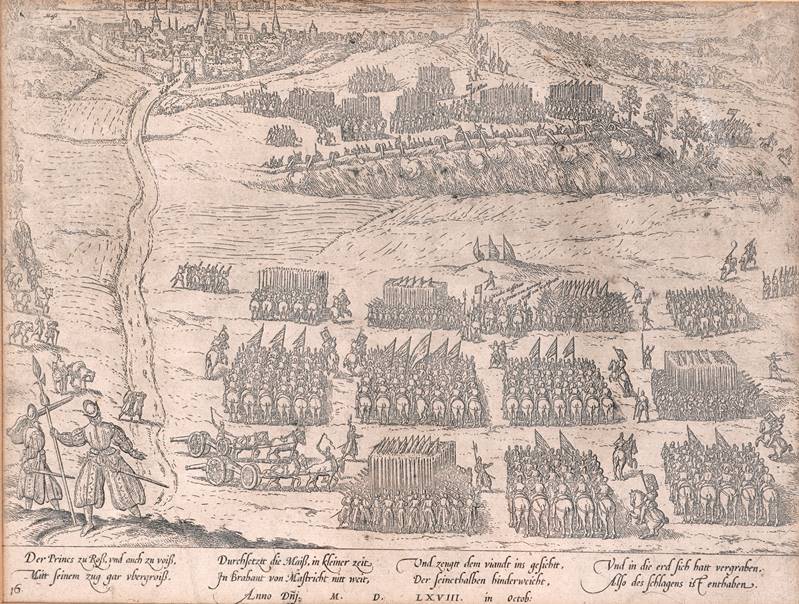 Der Princs zu Roß, vnd auch zu voiß,
Mitt seinem zug gar vbergroiß.
Durchsetzt die Maiß, in kleiner zeit
In Brabant von Mastricht nitt weit,
Vnd zeugtt dem viandt ins gesichtt,
Der seinethalben hinderweicht,
Vnd in die erd sich hatt vergraben,
Also des schlagens ist enthaben.
Anno Dnj. M. D. LXVIII. in Octob:
16